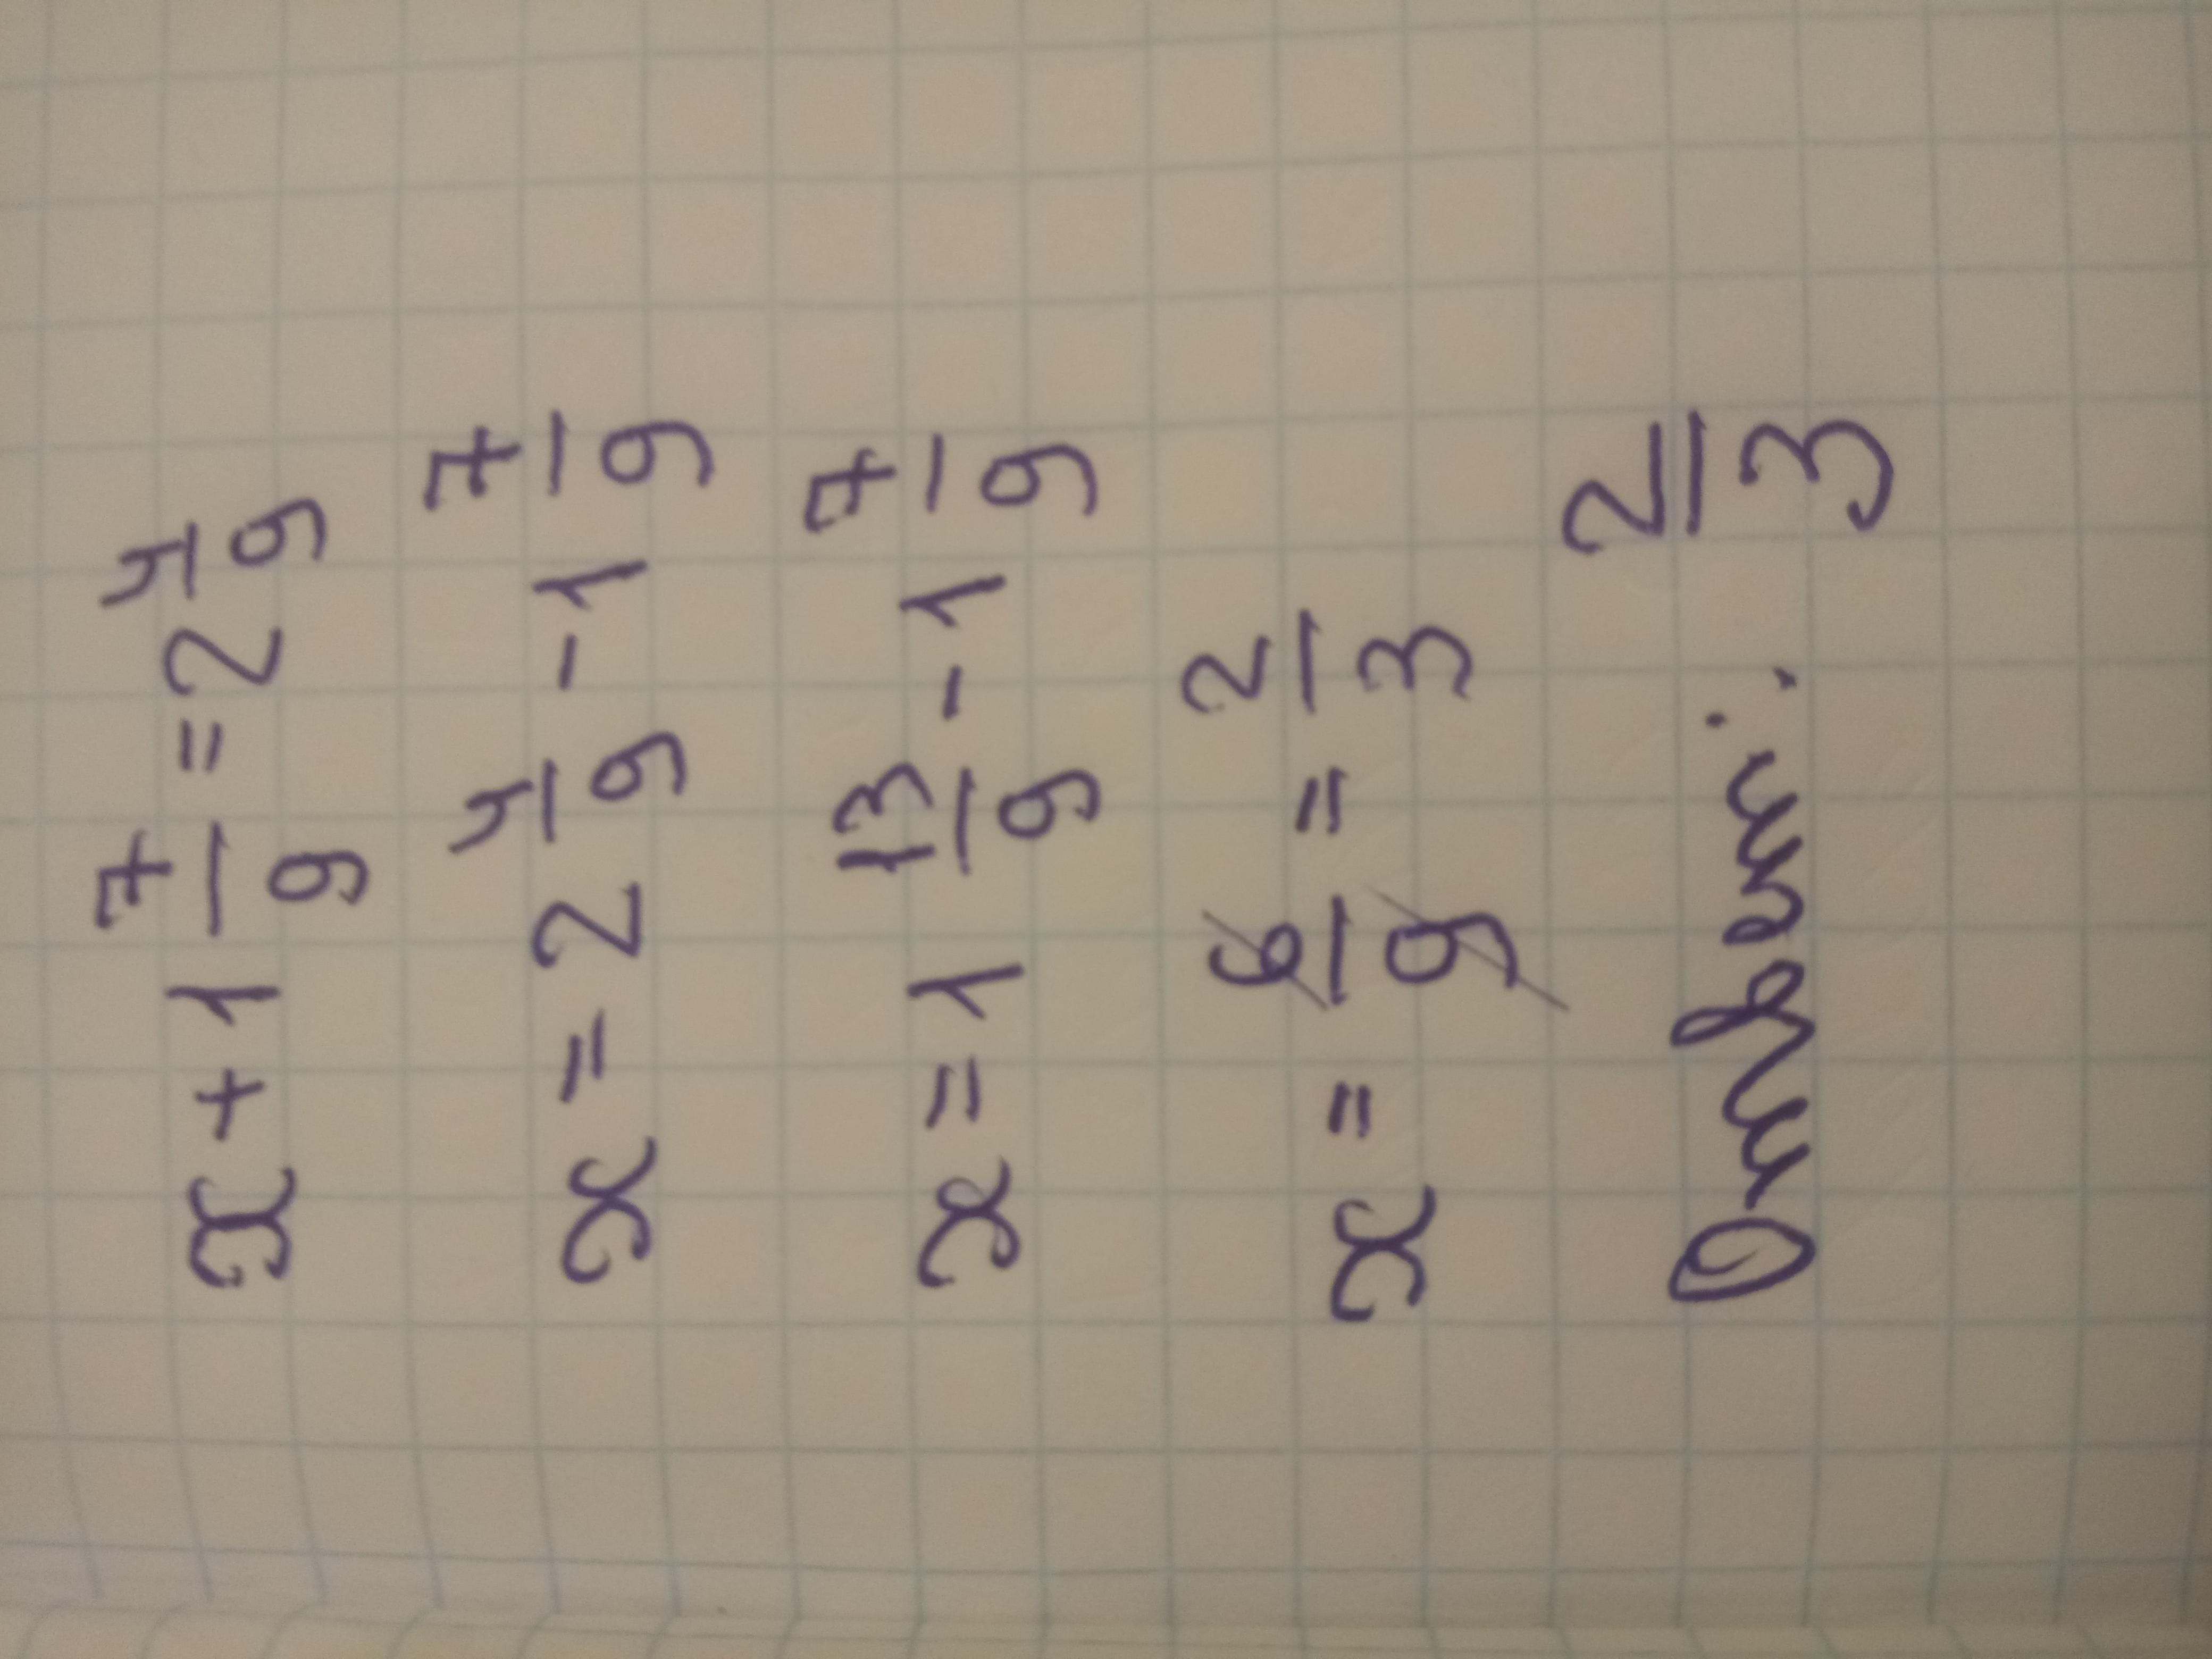 x + 1 7/9 = 2 4/9
x = 2 4/9 - 1 7/9
x = 1 13/9 - 1 7/9
x = 6/9 = 2/3
Ответ: 2/3